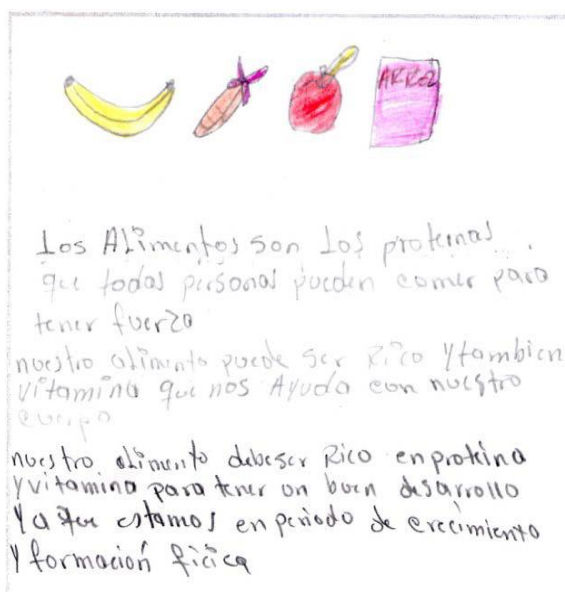 ARROZ
Los Alimentos son Los proteinas
que todas personas pueden comer para
tener fuerza
nuestro alimento puede ser Rico y tambien
vitamina que nos Ayuda con nuestro
cuerpo
nuestro alimento debe ser Rico en proteina
y vitamina para tener un buen desarrollo
Ya que estamos en periodo de crecimiento
y formación ficica